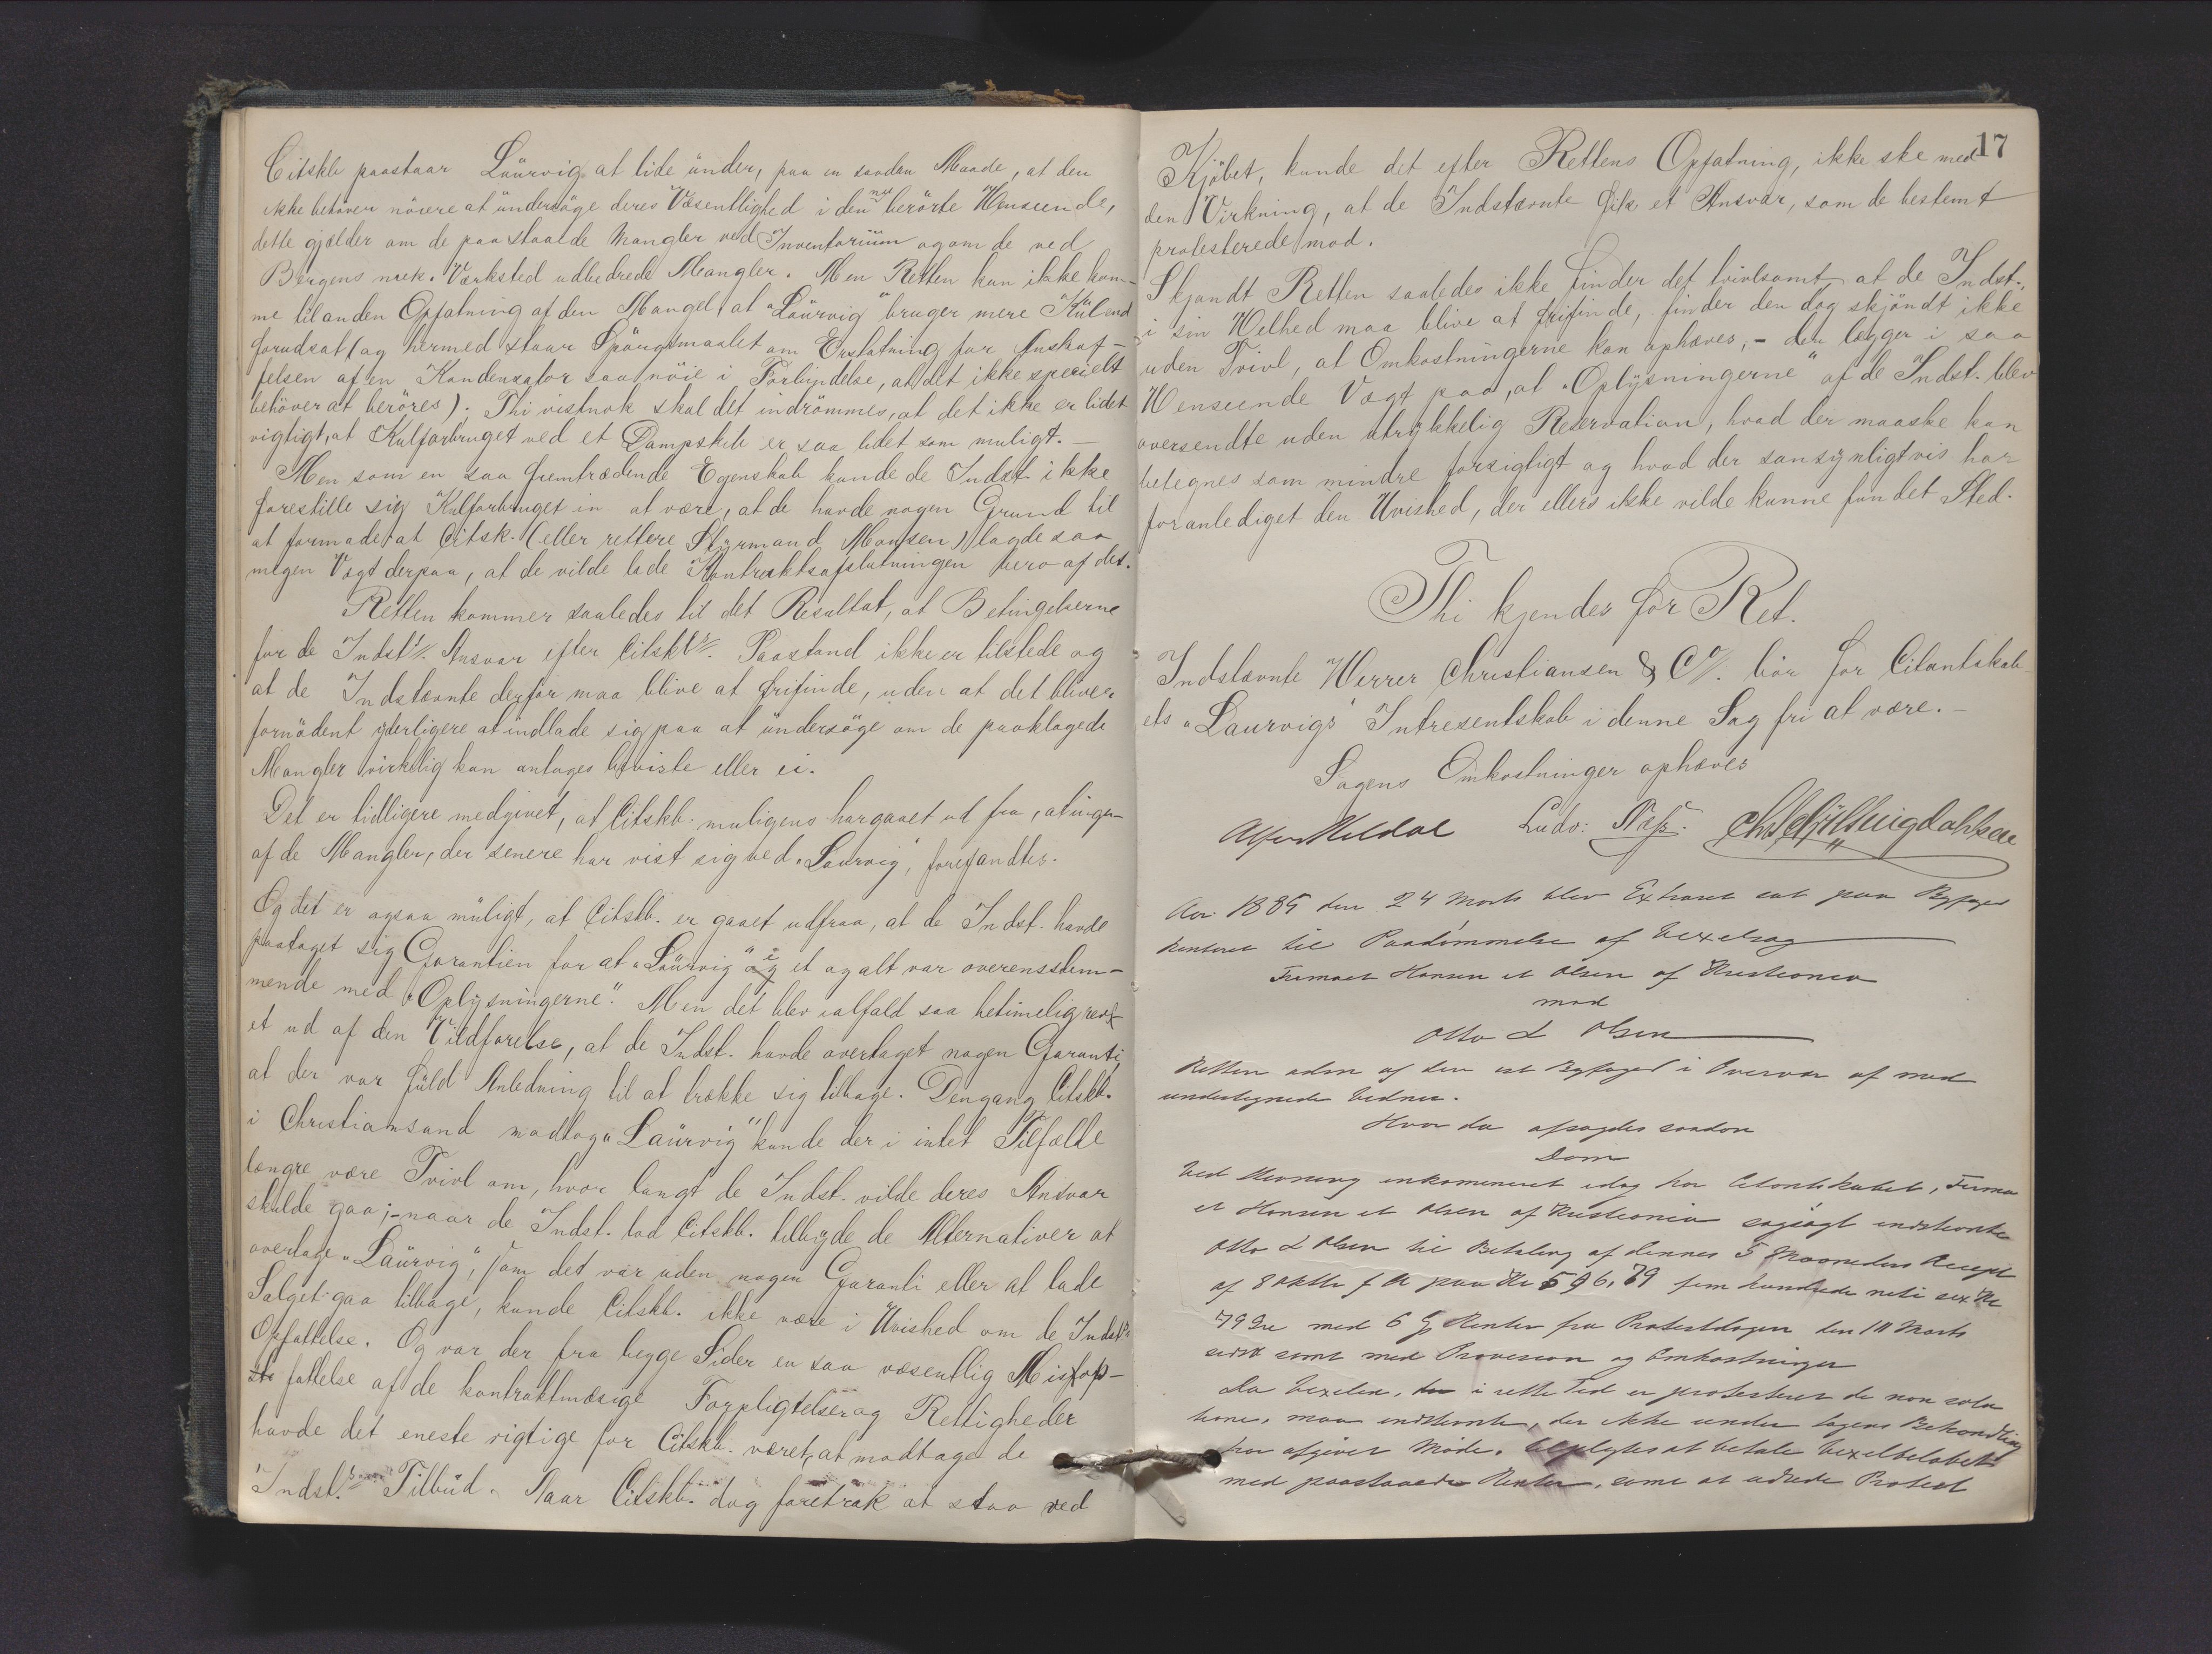 Citskb paastaar Laürvig at lide ünder, paa en saadan Maade, at den
ikke behöver nöiere at ündersöge deres Væsentlighed i den nu berörte Henseende,
dette gjælder om de paastaade Mangler ved Inventariüm og om de ved
Bergens mek. Værksted udbedrede Mangler. Men Retten kan ikke kom-
me til anden Opfatning af den Mangel, at "Laürvig" bruger mere Kül end
forudsat (og hermed staar Spörgsmaalet om Erstatning for Anskaf-
felsen af en Kondensator saa nöie i Forbindelse, at det ikke specielt
behöver at beröres). Thi vistnok skal det indrömmes, at det ikke er lidet
vigtigt, at Kulforbruget ved et Dampskib er saa lidet som muligt. —
Men som en saa fremtrædende Egenskab kunde de Indst. ikke
forestille sig Kulforbruget in at være, at de havde nogen Grund til
at formode at Citsk. (eller rettere Styrmand Monsen) lagde saa
megen Vægt derpaa, at de vilde lade Kontraktsafslutningen bero af det.
Retten kommer saaledes til det Resultat, at Betingelserne
for de Indsts. Ansvar efter Citskbs. Paastand ikke er tilstede og
at de Indstævnte derfor maa blive at frifinde, uden at det bliver
fornödent yderligere at indlade sig paa at ündersöge om de paaklagede
Mangler virkelig kan antages beviste eller ei.
Det er tidligere medgivet, at Citskb. muligens har gaaet ud fra, at ingen
af de Mangler, der senere har vist sig ved "Laurvig", forefandtes.
Og det er ogsaa müligt, at Citskb. er gaaet udfraa, at de Indst. havde
paataget sig Garantien for at "Laürvig" i et og alt var overensstem-
mende med "Oplysningerne". Men det blev ialfald saa betimelig rev-
et ud af den Vildfarelse, at de Indst. havde overtaget nogen Garanti,
at der var füld Anledning til at trække sig tilbage. Dengang Citskb.
i Christiansand modtog "Laürvig" kunde der i intet Tilfælde
længre være Tvivl om, hvor langt de Indst. vilde deres Ansvar
skulde gaa; - naar de Indst. lod Citskb. tilbyde de Alternativer at
overtage "Laürvig", som det var uden nogen Garanti eller at lade
Salget gaa tilbage, kunde Citskb. ikke være i Uvished om de Indsts.
Opfattelse. Og var der fra begge Sider en saa væsentlig Misop-
fattelse af de kontraktmæsige Forpligtelser og Rettigheder
havde det eneste rigtige for Citskb. været, at modtage de
Indst.s Tilbüd. Naar Citskb. dog foretrak at staa ved
17
Kjöbet, kunde det efter Rettens Opfatning, ikke ske med
den Virkning, at de Indstævnte fik et Ansvar, som de bestemt
protesterede mod.
Skjøndt Retten saaledes ikke finder det tvivlsomt, at de Indst.,
i sin Helhed maa blive at frifinde, finder den dog skjöndt ikke
uden Tvivl, at Omkostningerne kan ophæves, - den lægger i saa
Henseende Vægt paa, at "Oplysningerne" af de Indst. blev
oversendte uden utrykkelig Reservation, hvad der maaske kan
betegnes som mindre forsigtigt og hvad der sansynligtvis har
foranlediget den Uvished, der ellers ikke vilde kunne fundet Sted.
Thi kjendes for Ret.
Indstævnte Herrer Christiansen & Co. bör for Citantskab-
ets "Laurvigs" Intresentskab i denne Sag fri at være. —
Sagens Omkostninger ophæves
Alfer Heldal Ludv: Næss.
Aar 1885 den 24 Marts blev Extraret sat paa Byfoged
kontoret til Paadømmelse af Vexelsag
Firmaet Hansen et Olsen af Kristiania
mod
Otto L Olsen
Retten adm af den est Byfoged i Overvær af med
undertegnede Vidner.
Hvor da afsagdes saadan
Dom
Ved Stevning indkommeret idag har Citantskabet, Firma
et Hansen et Olsen af Kristiania sagsøgt indstevnte
Otto L Olsen til Betaling af dennes 5 Maaneders Accept
af 8 Oktbr f A paa Kr 596,79 fem hundrede niti sex Kr
79 Øre med 6 % Renter fra Protestdagen den 10 Marts
sidst samt med Provision og Omkostninger
Da Vexelen, i rette Tid er protesteret de non solu
tione, maa indstevnte, der ikke under Sagens Behandling
har afgivet Møde, tilpligtes at betale Vexelbeløbet
med paastaaede Renter, samt at udrede Protest